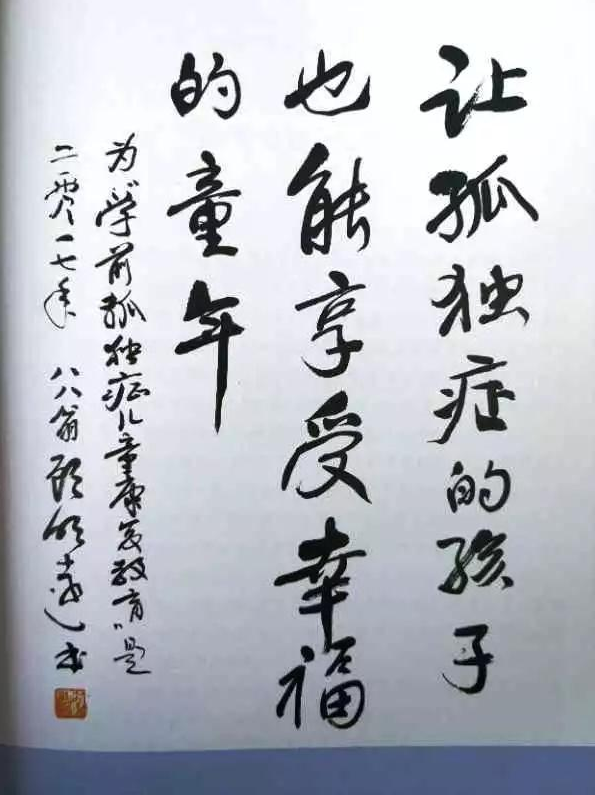 让孤独症的孩子
也能享受幸福
的童年
为“学前孤独症儿童康复教育”题
二零一七年 八八翁顾明远书